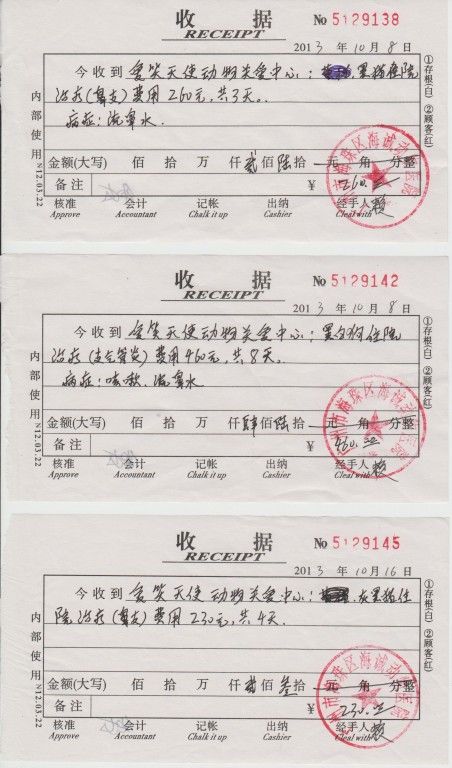 收 据
RECEIPT
No 5129138
2013 年 10 月 8 日
今收到 爱笑天使动物关爱中心: 黑猫住院
治疗(鼻支)费用260元,共3天。
病症:流鼻水
金额(大写) 佰 拾 万 仟 贰 佰 陆 拾 元 角 分整
备注
¥ 260.
核准 会计 记帐 出纳 经手人
Approve Accountant Chalk it up Cashier Cleal with
内部使用 N12.03.22
①存根(白) ②顾客(红)
收 据
RECEIPT
No 5129142
2013 年 10 月 8 日
今收到 爱笑天使动物关爱中心: 黑白狗住院
治疗(支气管炎)费用460元,共8天。
病症:咳嗽、流鼻水
金额(大写) 佰 拾 万 仟 肆 佰 陆 拾 元 角 分整
备注
¥ 460.
核准 会计 记帐 出纳 经手人
Approve Accountant Chalk it up Cashier Cleal with
内部使用 N12.03.22
①存根(白) ②顾客(红)
收 据
RECEIPT
No 5129145
2013 年 10 月 16 日
今收到 爱笑天使动物关爱中心: 灰黑猫住
院治疗(鼻支)费用230元,共4天。
金额(大写) 佰 拾 万 仟 贰 佰 叁 拾 元 角 分整
备注
¥ 230.
核准 会计 记帐 出纳 经手人
Approve Accountant Chalk it up Cashier Cleal with
内部使用 N12.03.22
①存根(白) ②顾客(红)